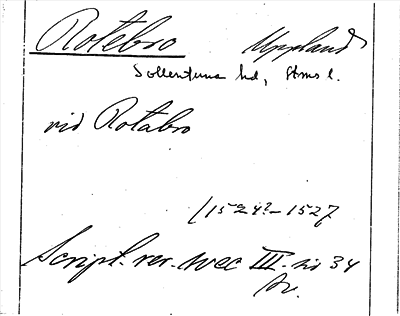 Rotebro Uppland
Sollentuna hd, Sthms l.
vid Rotabro
/1524?-1527
Script. rer. svec III. sid 34
Av.